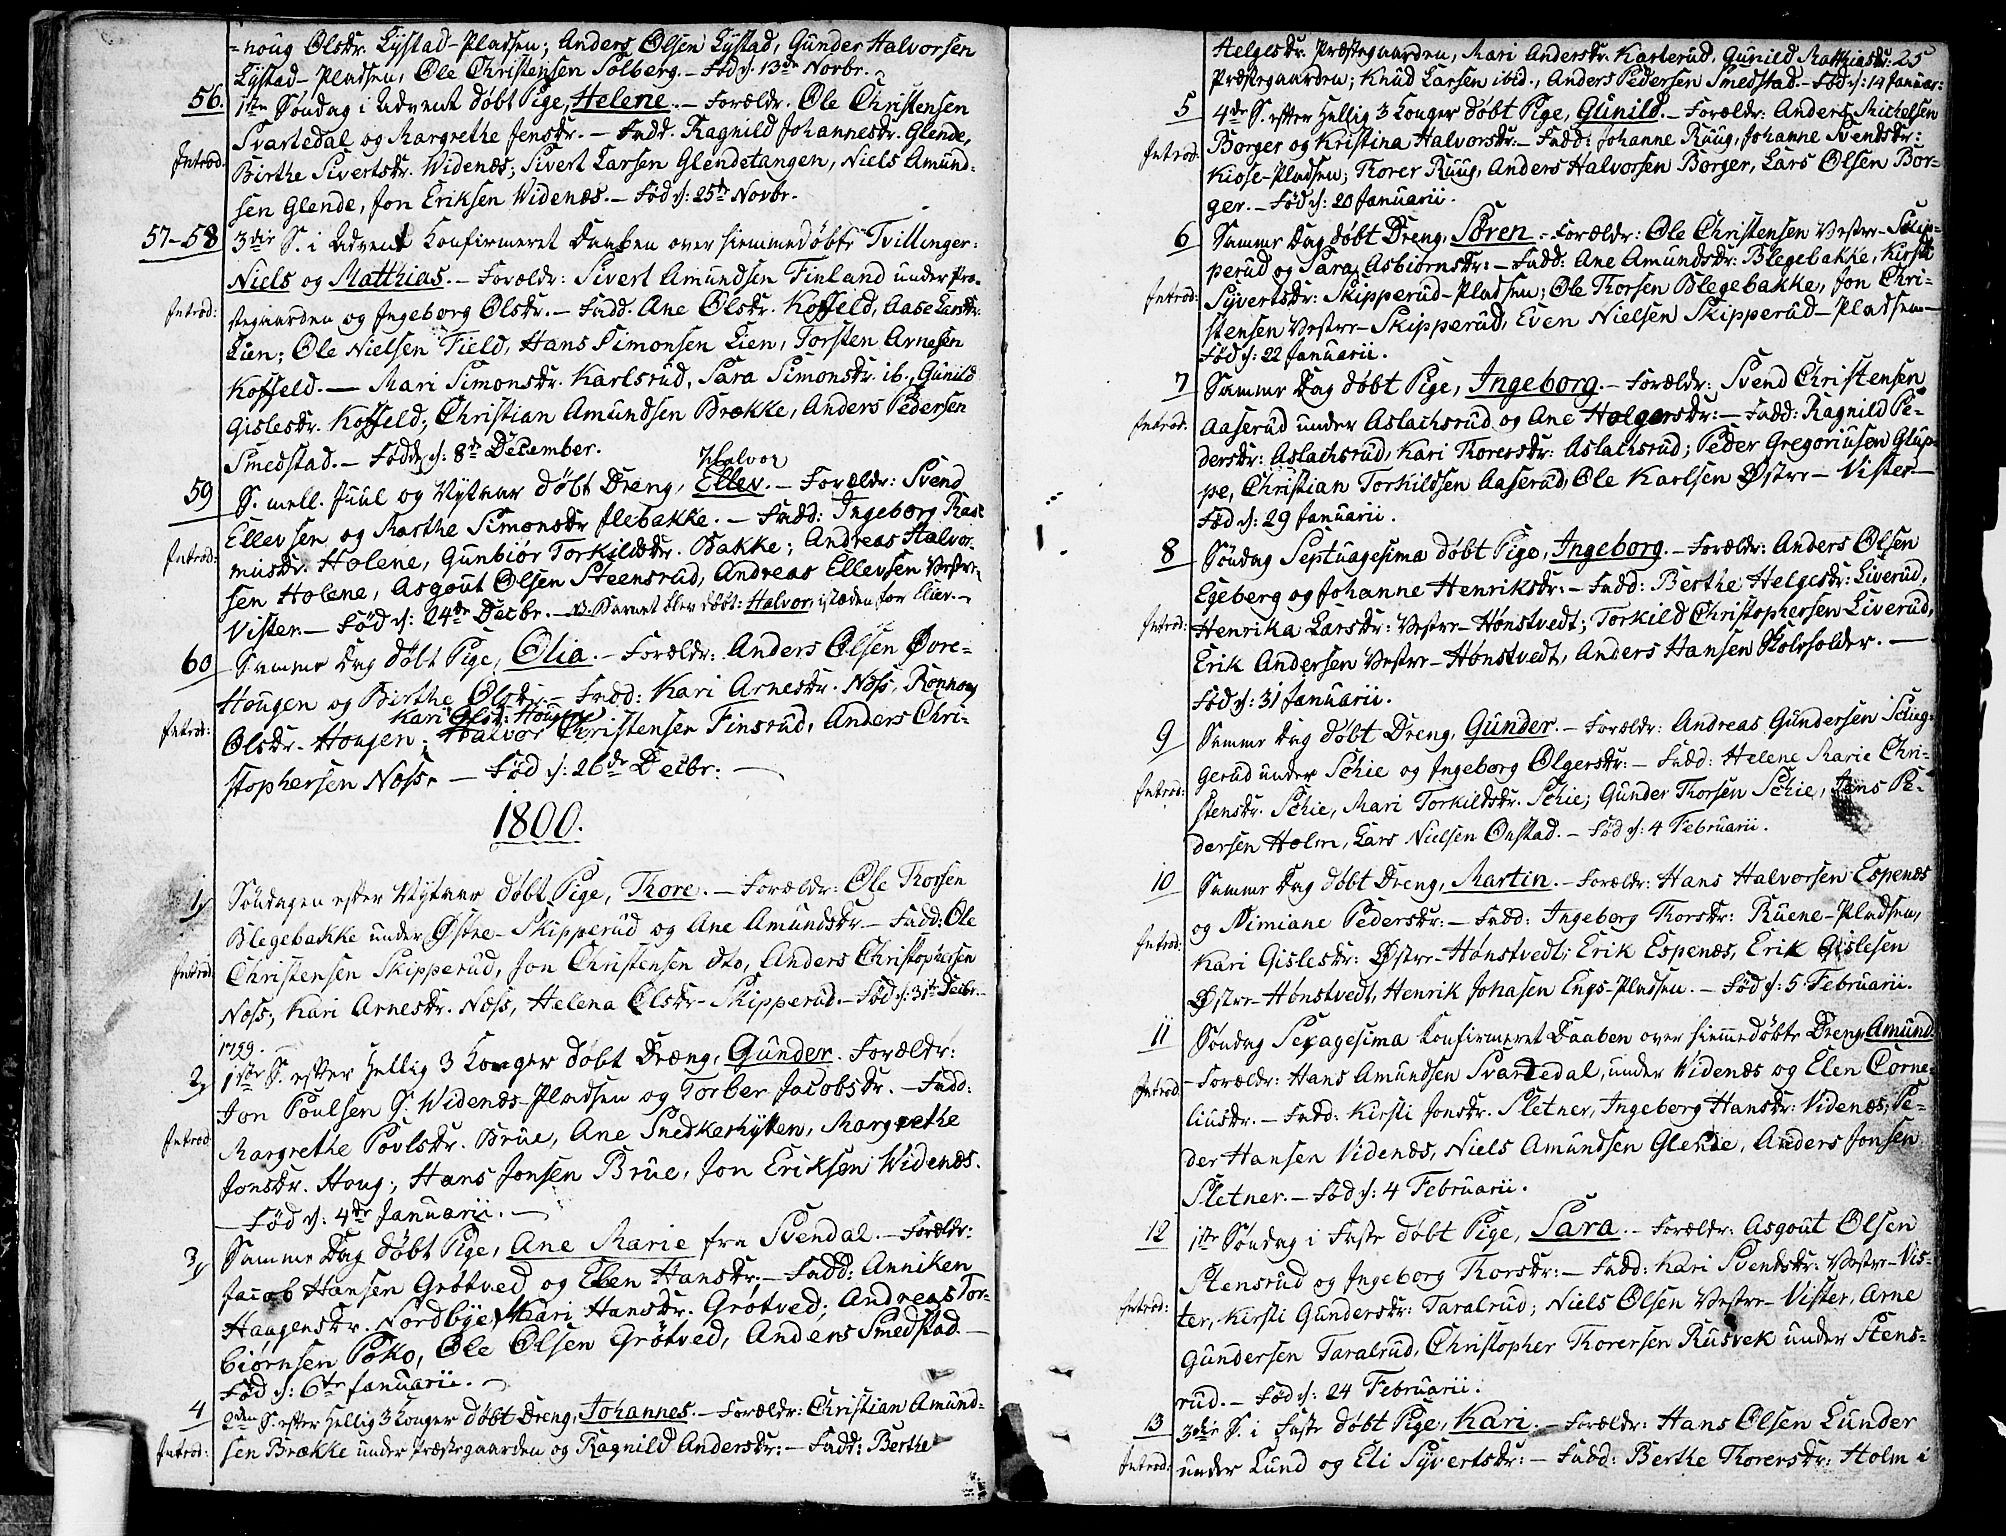 =noug Olsdr. Lystad-Pladsen; Anders Olsen Lystad, Gunder Halvorsen
Lystad-Pladsen, Ole Christensen Solberg. - Fød d: 13de Novbr.
56. 1ste Søndag i Advent døbt Pige, Helene. - Forældr. Ole Christensen
Svartedal og Margrethe Jensdr. - Fadd. Ragnild Johannesdr. Glende,
Introd: Birthe Sivertsdr. Widenæs; Sivert Larsen Glendetangen, Niels Amund-
sen Glende, Jon Eriksen Widenæs. - Fød d: 25de Novbr.
57-58 3die S. i Advent Confirmeret Daaben over hiemmedøbte Tvillinger:
Niels og Matthias. - Forældr: Sivert Amundsen Finland under Præ-
Introd: stegaarden og Ingeborg Olsdr. - Fadd. Ane Olsdr. Koffeld, Aase Larsdr.
Lien; Ole Nielsen Field, Hans Simonsen Lien, Torsten Arnesen
Koffeld. - Mari Simonsdr. Karlsrud, Sara Simonsdr. ib., Gunild
Gislesdr. Koffeld; Christian Amundsen Brække, Anders Pedersen
Smedstad. - Fødde d: 8de December.
Halvor
59 S. mell. Juul og Nytaar døbt Dreng, Ellev. - Forældr: Svend
Ellevsen og Marthe Simonsdr Flebakke. - Fadd: Ingeborg Ras-
Introd: musdr. Holene, Gunbiør Torkildsdr. Bakke; Andreas Halvor-
sen Holene, Asgout Olsen Steensrud, Andreas Ellevsen Vestre-
Vister. - Fød d: 24de Decbr. - Barnet blev døbt: Halvor, istæden for Ellev. -
60 Samme Dag døbt Pige, Olia. - Forældr: Anders Olsen Øvre-
Hougen og Birthe Olsdr. - Fadd: Kari Arnesdr. Noss, Ronnoug
Kari Olsd: Hougen
Introd: Olsdr. Hougen; Halvor Christensen Finsrud, Anders Chri-
stophersen Noss. - Fød d: 26de Decbr: -
1800.
1, Søndagen efter Nytaar døbt Pige, Thore. - Forældr: Ole Thorsen
Blegebakke under Østre-Skipperud og Ane Amundsdr - Fadd: Ole
Introd: Christensen Skipperud, Jon Christensen dto, Anders Christophersen
Noss; Kari Arnesdr. Noss, Helena Olsdr. Skipperud. - Fød d: 31te Decbr.
1799.
2, 1ste S. efter Hellig 3 Konger døbt Dræng, Gunder. Forældr:
Jon Poulsen S: Widenæs-Pladsen og Torber Jacobsdr. - Fadd:
Introd: Margrethe Povlsdr. Brue, Ane Snedkerhytten, Margrethe
Jonsdr. Houg; Hans Jonsen Brue, Jon Eriksen Widenæs.
- Fød d: 4de Januarii. -
3, Samme Dag døbt Pige, Ane Marie fra Svendal. - Forældr:
Jacob Hansen Grøtved og Eben Hansdr. - Fadd: Anniken
Haagensdr. Nordbye, Mari Hansdr. Grøtved; Andreas Tor-
biørnsen Poko, Ole Olsen Grøtved, Anders Smedstad. -
Fød d: 6te Januarii. -
4 2den S. efter Hellig 3 Konger døbt Dreng, Johannes. - Forældr: Christian Amund-
Introd: sen Brække under Præstegaarden og Ragnild Andersdr: - Fadd: Berthe
Helgesdr. Præstegaarden, Mari Andersdr. Karterud, Gunild Matthiasdr: 25
Præstegaarden; Knud Larsen ibid., Anders Pedersen Smedstad. - Fød d: 14 Januar:
5 4de S. efter Hellig 3 Konger døbt Pige, Gunild. - Forældr: Anders Michelsen
Introd: Borger og Kristina Halvorsdr. - Fadd: Johanne Ruug, Johanne Svendsdr:
Kiose-Pladsen; Thorer Ruug, Anders Halvorsen Borger, Lars Olsen Bor-
ger. - Fød d: 20 Januarii.
6 Samme Dag døbt Dreng, Søren. - Forældr: Ole Christensen Vestre-Skip-
perud og Sara Asbiørnsdr: - Fadd: Ane Amundsdr: Blegebakke, Kirsti
Introd: Syvertsdr: Skipperud-Pladsen; Ole Thorsen Blegebakke, Jon Chri-
stensen Vestre-Skipperud, Even Nielsen Skipperud-Pladsen. -
Fød d: 22 Januarii.
7 Samme Dag døbt Pige, Ingeborg. - Forældr: Svend Christensen
Introd: Aaserud under Aslachsrud og Ane Holgersdr: - Fadd: Ragnild Pe-
dersdr: Aslachsrud, Kari Thorersdr: Aslachsrud; Peder Gregoriusen Glup-
pe, Christian Torkildsen Aaserud, Ole Karlsen Østre-Vister. -
Fød d: 29 Januarii.
8 Søndag Septuagesima døbt Pige, Ingeborg. - Forældr: Anders Olsen
Egeberg og Johanne Henriksdr: - Fadd: Berthe Helgesdr: Liverud,
Introd: Henrika Larsdr: Vestre-Hønstvedt; Torkild Christophersen Liverud,
Erik Andersen Vestre-Hønstvedt, Anders Hansen Skoleholder. -
Fød d: 31 Januarii.
9 Samme Dag døbt Dreng, Gunder. - Forældr: Andreas Gundersen Schug-
gerud under Schie og Ingeborg Olgersdr: - Fadd: Helene Marie Chri-
Introd: stensdr. Schie, Mari Torkildsdr. Schie; Gunder Thorsen Schie, Jens Pe-
dersen Holm, Lars Nielsen Onstad. - Fød d: 4 Februarii.
10 Samme Dag døbt Dreng, Martin. - Forældr: Hans Halvorsen Espenæs
og Dimiane Pedersdr: - Fadd: Ingeborg Thorsdr: Ruene-Pladsen,
Introd: Kari Gislesdr: Østre-Hønstvedt; Erik Espenæs, Erik Gislesen
Østre-Hønstvedt, Henrik Johasen Engs-Pladsen. - Fød d: 5 Februarii.
11 Søndag Sexagesima Confirmeret Daaben over hiemmedøbte Dreng, Amund.
Introd: - Forældr: Hans Amundsen Svartedal, under Widenæs og Elen Corne-
liusdr. - Fadd: Kirsti Jonsdr. Sletner, Ingeborg Hansdr: Videnæs; Pe-
der Hansen Videnæs, Niels Amundsen Glende, Anders Jonsen
Sletner. - Fød d: 4 Februarii.
12 1ste Søndag i Faste døbt Pige, Sara. - Forældr: Asgout Olsen
Stensrud og Ingeborg Thorsdr: - Fadd: Kari Svendsdr: Vestre-Vis-
Introd: ter, Kirsti Gundersdr: Taralrud; Niels Olsen Vestre-Vister, Arne
Gundersen Taralrud, Christopher Thorersen Rusvek under Stens-
rud. - Fød d: 24 Februarii.
13 3die S. i Faste døbt Pige, Kari. - Forældr: Hans Olsen Lunder
Introd: under Lund og Eli Syvertsdr: - Fadd: Berthe Thorersdr: Holm i